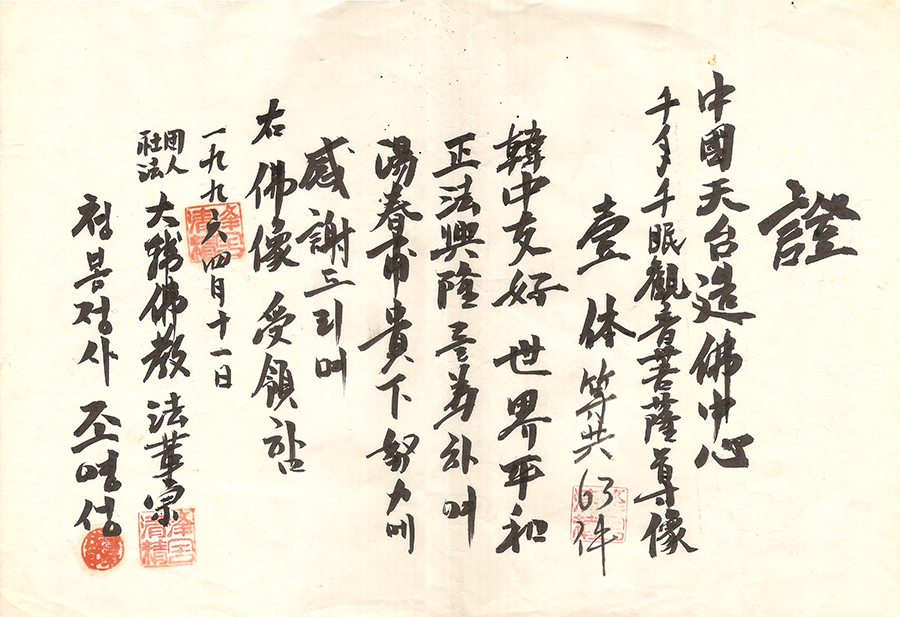 證
中國天台造佛中心
千手千眼觀音菩薩尊像
壹体等共63件
韓中友好 世界平和
正法興隆 를 爲하여
湯春甫貴下努力에
感謝드리며
右佛像受領함
一九九六四月十一日
社団法人 大韓佛教 法華宗
청봉정사 조영성